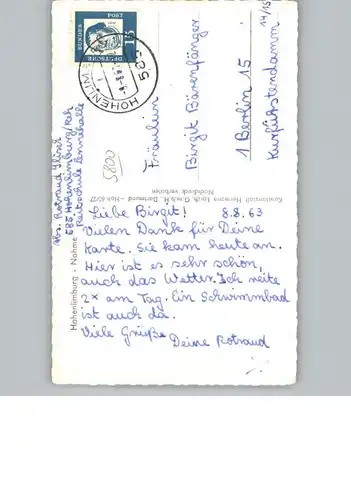 Liebe Birgit! 8.8.63
Vielen Dank für Deine
Karte. Sie kam heute an.
Hier ist es sehr schön,
auch das Wetter. Ich reite
2x am Tag. Ein Schwimmbad
ist auch da.
Viele Grüße
Deine Rotraud
Fräulein
Birgit Bärenfänger
1 Berlin 15
Kurfürstendamm
14/15
Abs. Rotraud
585 Hohenlimburg/Rah
Reitschule Lennehalle
Hohenlimburg - Nahmer
Kunstanstalt Hermann Lorch, G.m.b.H., Dortmund
Nachdruck verboten
5800
DEUTSCHE
BUNDES
POST
15
HOHENLIMBURG
585